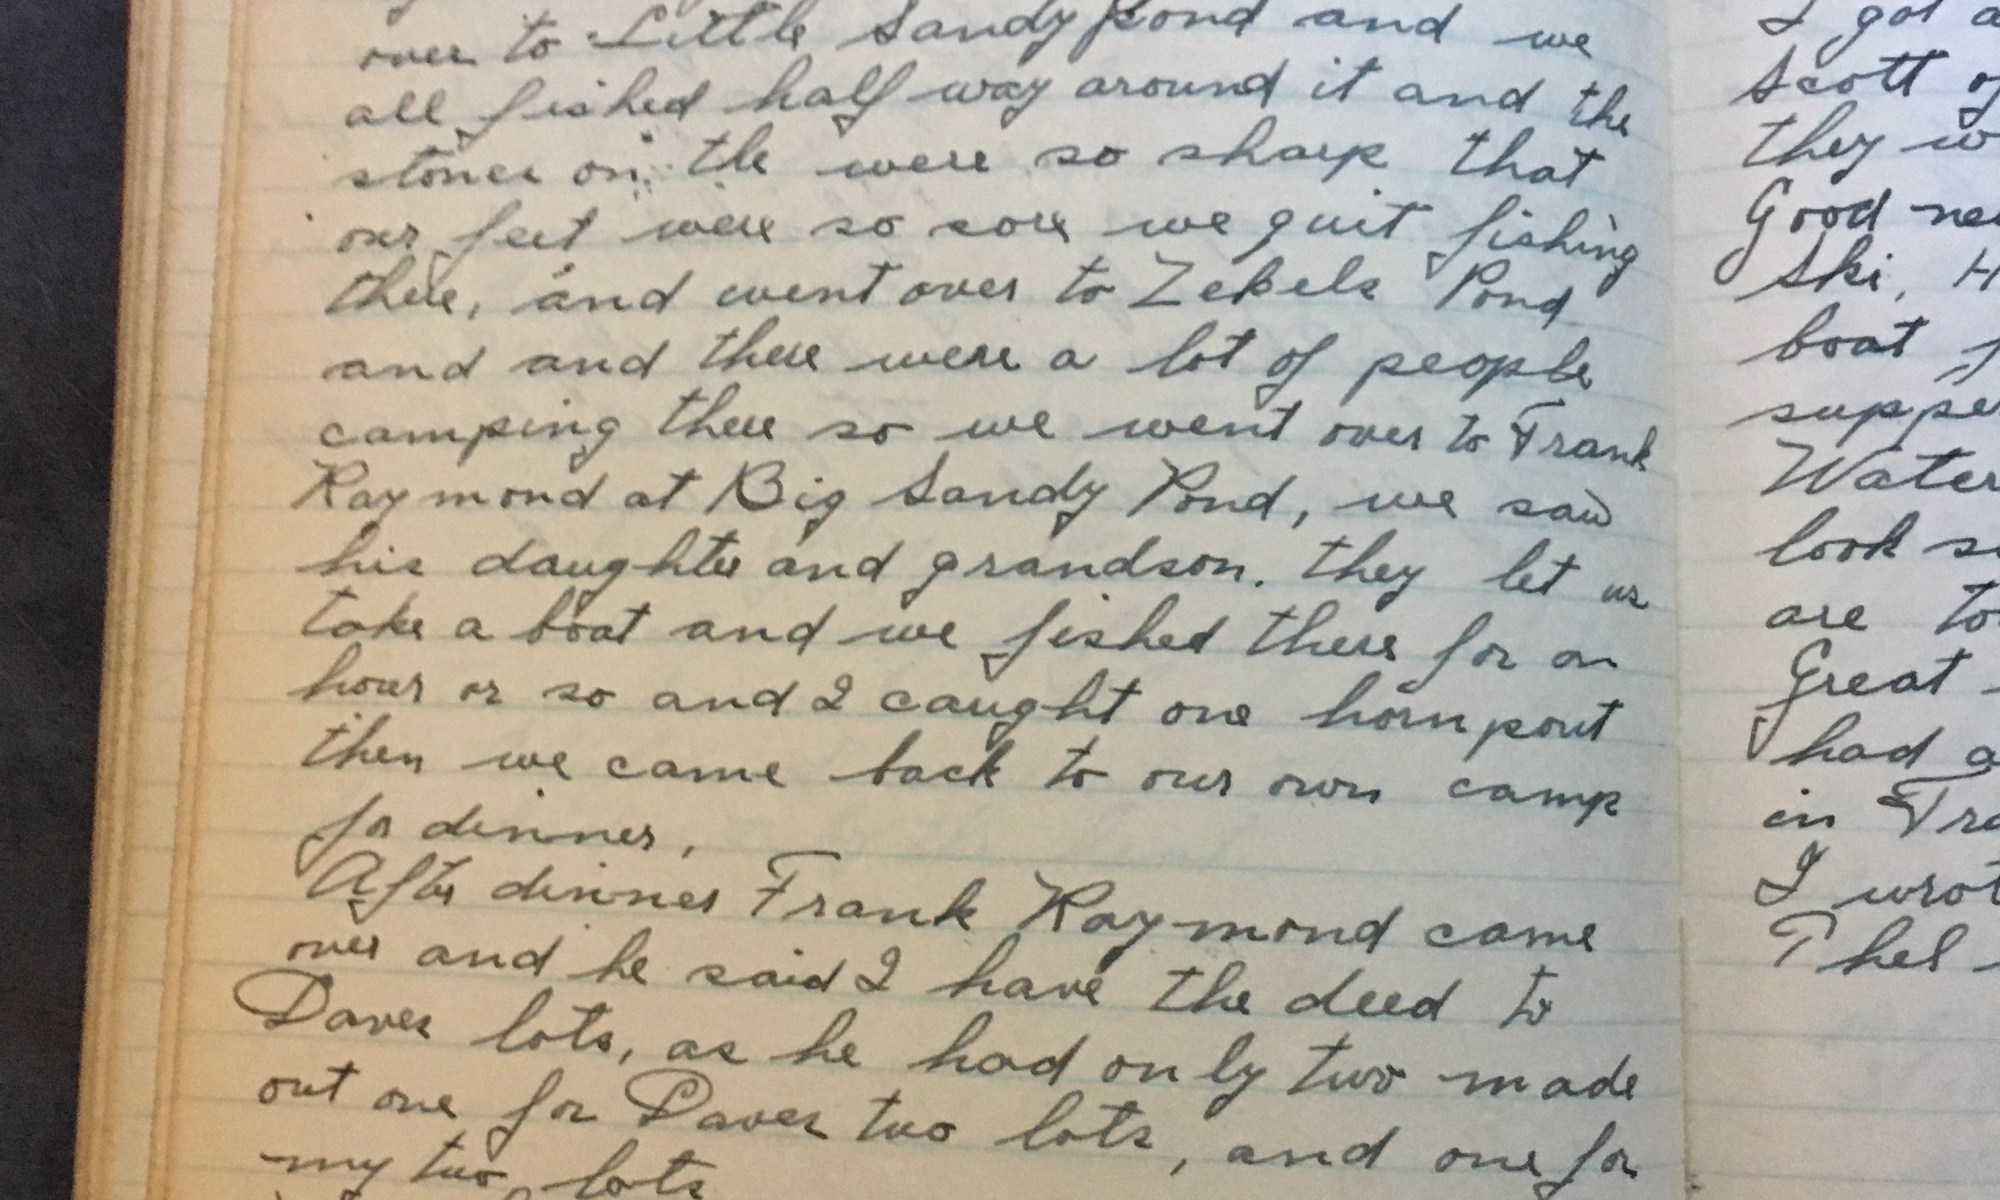 over to Little Sandy Pond and we
all fished half way around it and the
stones on the were so sharp that
our feet were so sore we quit fishing
there, and went over to Zekels Pond
and and there were a lot of people
camping there so we went over to Frank
Raymond at Big Sandy Pond, we saw
his daughter and grandson. they let us
take a boat and we fished there for an
hour or so and I caught one horn pout
then we came back to our own camp
for dinner,
After dinner Frank Raymond came
over and he said I have the deed to
Daves lots, as he had only two made
out one for Daves two lots, and one for
my two lots
I got a
Scott of
they w
Good ne
Ski, H
boat f
suppe
Water
look s
are to
Great
had a
in Tra
I wrot
Thel